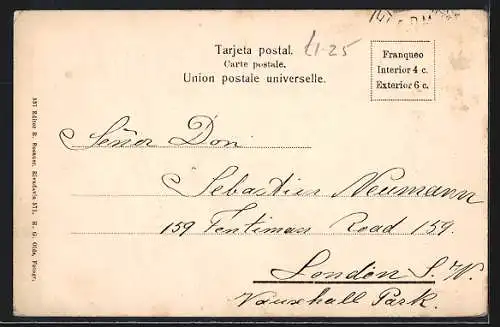 Tarjeta postal.
Carte postale.
Union postale universelle.
£1-25
Franqueo
Interior 4 c.
Exterior 6 c.
Señor Don
Sebastian Neumann
159 Fentiman Road 159.
London S. W.
Vauxhall Park.
157 Editor R. Rosauer, Rivadavia 571. H. G. Olds, Fotogr.